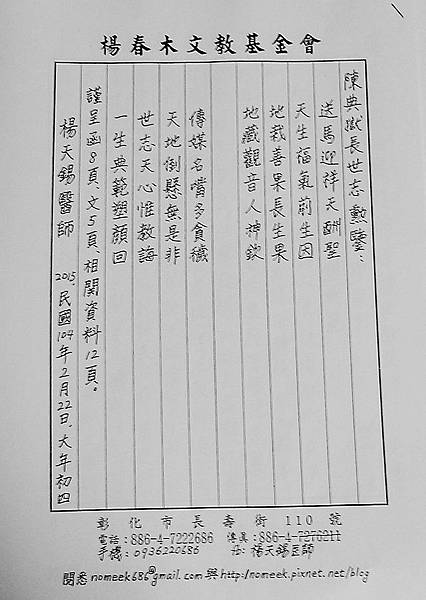 楊春木文教基金會
陳典獄長世志勳鑒：
送馬迎祥天酬聖
天生福氣前生因
地栽善果長生果
地藏觀音人神欽
傳媒名嘴多貪穢
天地倒懸無是非
世志天心惟教誨
一生典範塑顏回
謹呈函8頁、文5頁、相關資料12頁。
楊天錫醫師 2015、民國104年2月22日、大年初四
彰化市長壽街110號
電話：886-4-7222686 傳真：886-4-7276211
手機：0936220686 楊天錫医師
閱悉nomeek686@gmail.com與http://nomeek.pixnet.net/blog